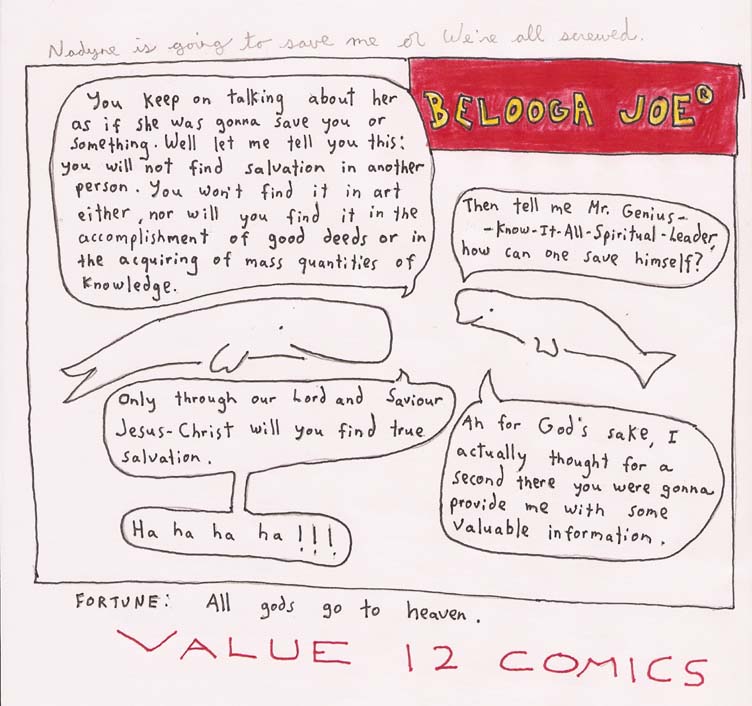 Nadyne is going to save me or We're all screwed.
BELOOGA JOE®
You keep on talking about her
as if she was gonna save you or
something. Well let me tell you this:
you will not find salvation in another
person. You won't find it in art
either, nor will you find it in the
accomplishment of good deeds or in
the acquiring of mass quantities of
knowledge.
Then tell me Mr. Genius-
-Know-It-All-Spiritual-Leader,
how can one save himself?
Only through our Lord and Saviour
Jesus-Christ will you find true
salvation.
Ha ha ha ha !!!
Ah for God's sake, I
actually thought for a
second there you were gonna
provide me with some
valuable information.
FORTUNE: All gods go to heaven.
VALUE 12 COMICS